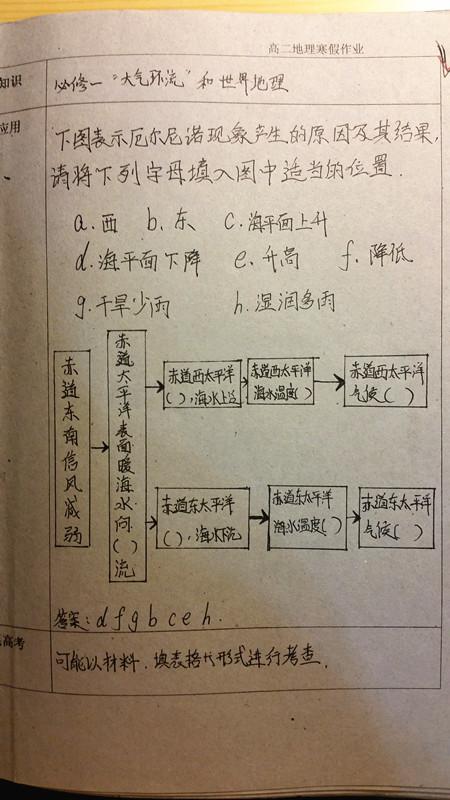 高二地理寒假作业
知识
必修一 "大气环流" 和世界地理
应用
下图表示厄尔尼诺现象产生的原因及其结果,
请将下列字母填入图中适当的位置.
a.西 b.东 c.海平面上升
d.海平面下降 e.升高 f.降低
g.干旱少雨 h.湿润多雨
赤道东南信风减弱
赤道太平洋表面暖海水向()流
赤道西太平洋
(),海水上泛
赤道西太平洋
海水温度()
赤道西太平洋
气候()
赤道东太平洋
(),海水下沉
赤道东太平洋
海水温度()
赤道东太平洋
气候()
答案:d f g b c e h.
高考
可能以材料、填表格式形式进行考查.